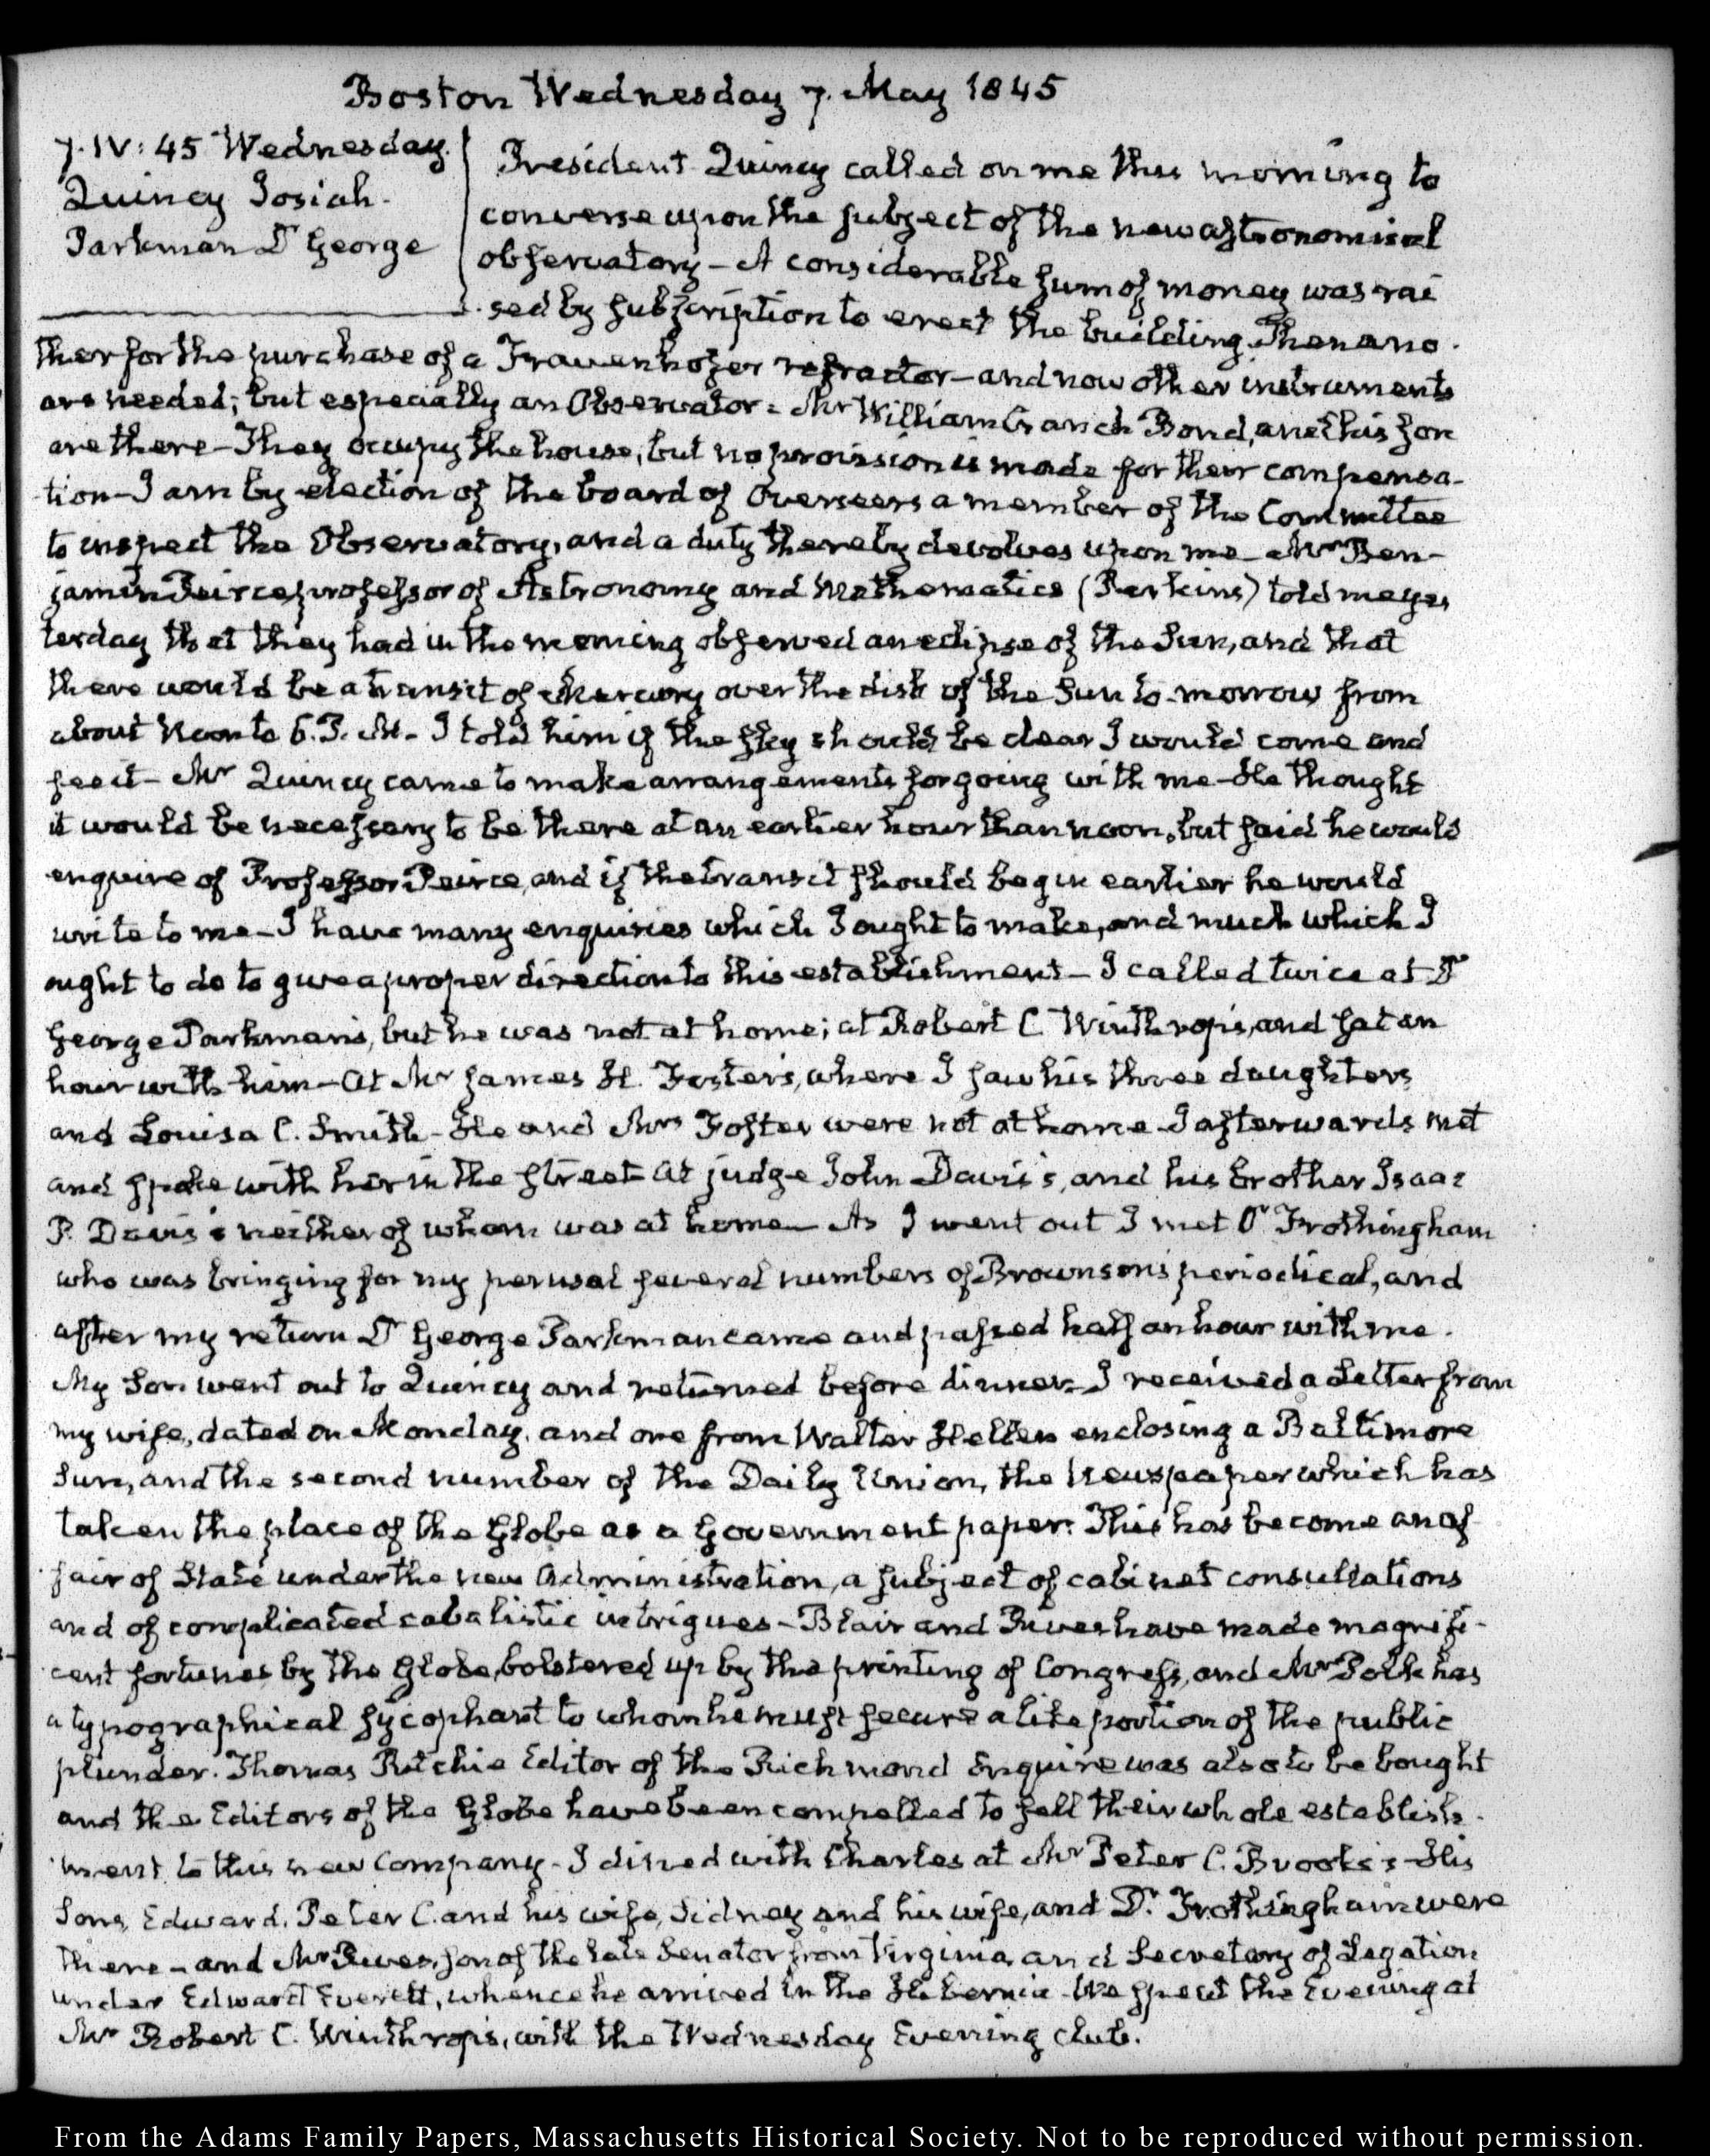 Boston Wednesday 7. May 1845
7. IV: 45 Wednesday.
Quincy Josiah.
Parkman Dr George
President Quincy called on me this morning to
converse upon the subject of the new astronomical
observatory – A considerable sum of money was rai
sed by subscription to erect the building. Then ano.
ther for the purchase of a Frauenhofer refractor – and now other instruments
are needed; but especially an Observator. Mr William Cranch Bond, and his son
are there – They occupy the house, but no provision is made for their compensa-
tion – I am by election of the board of Overseers a member of the Committee
to inspect the Observatory, and a duty thereby devolves upon me – Mr Ben-
jamin Peirce, professor of Astronomy and Mathematics (Perkins) told me yes
terday that they had in the morning observed an eclipse of the Sun, and that
there would be a transit of Mercury over the disk of the Sun to-morrow from
about Noon to 6. P. M. – I told him if the sky should be clear I would come and
see it – Mr Quincy came to make arrangements for going with me – He thought
it would be necessary to be there at an earlier hour than noon, but said he would
enquire of Professor Peirce, and if the transit should begin earlier he would
write to me – I have many enquiries which I ought to make, and much which I
ought to do to give a proper direction to this establishment – I called twice at Dr
George Parkman's, but he was not at home; at Robert C Winthrop's, and sat an
hour with him – At Mr James H. Foster's, where I saw his three daughters
and Louisa C. Smith – He and Mrs Foster were not at home – I afterwards met
and spoke with her in the street – At judge John Davis's, and his brother Isaac
P. Davis's neither of whom was at home – As I went out I met Dr Frothingham
who was bringing for my perusal several numbers of Brownson's periodical, and
after my return Dr George Parkman came and passed half an hour with me.
My Son went out to Quincy and returned before dinner – I received a Letter from
my wife, dated on Monday, and one from Walter Hellen enclosing a Baltimore
Sun, and the second number of the Daily Union, the Newspaper which has
taken the place of the Globe as a Government paper. This has become an af
fair of State under the new Administration, a subject of cabinet consultations
and of complicated cabalistic intrigues – Blair and Rives have made magnifi-
cent fortunes by the Globe, bolstered up by the printing of Congress, and Mr Polk has
a typographical sycophant to whom he must secure a like portion of the public
plunder. Thomas Ritchie Editor of the Richmond Enquirer was also to be bought
and the Editors of the Globe have been compelled to sell their whole establish-
ment to this new Company – I dined with Charles at Mr Peter C. Brooks's – His
Sons, Edward, Peter C. and his wife, Sidney and his wife, and Dr. Frothingham were
there – and Mr Rives, son of the late Senator from Virginia and Secretary of Legation
under Edward Everett, whence he arrived in the Hibernia – We spent the Evening at
Mr Robert C. Winthrop's, with the Wednesday Evening Club.
From the Adams Family Papers, Massachusetts Historical Society. Not to be reproduced without permission.